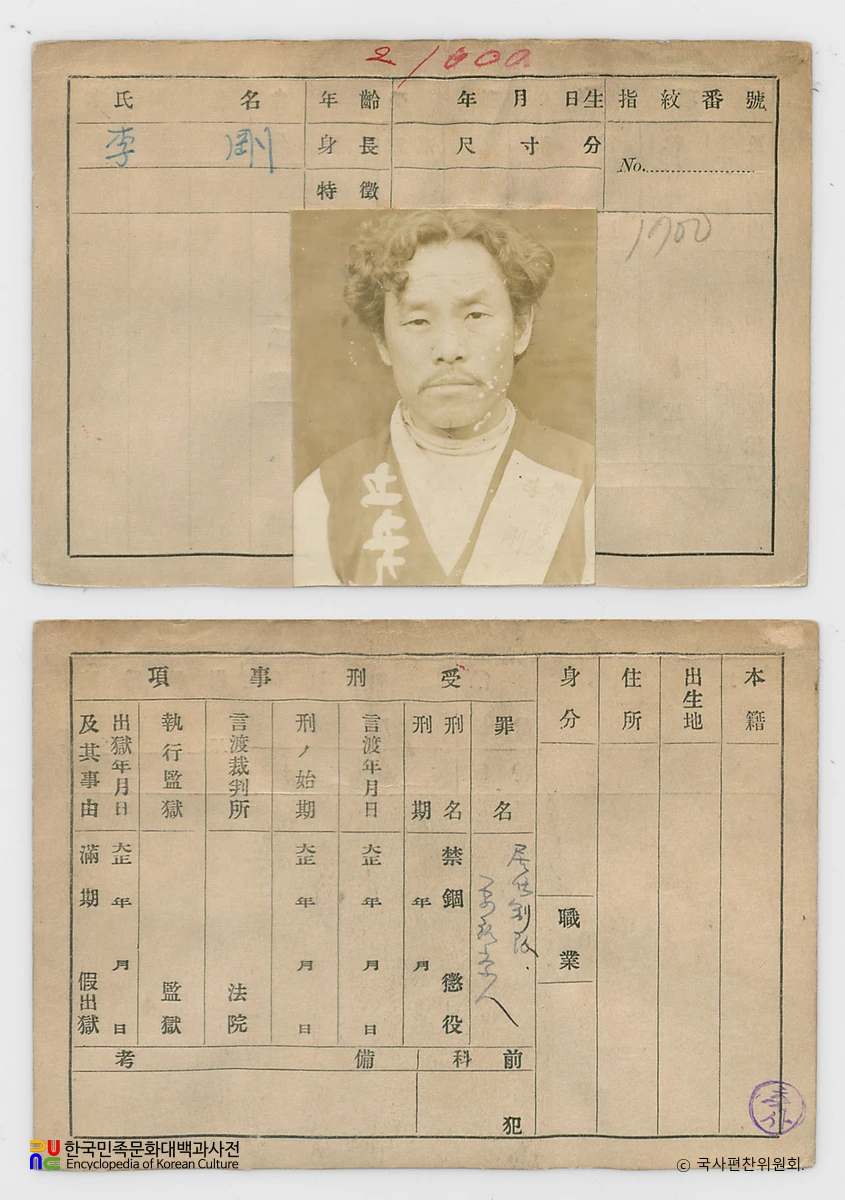 2/000
氏名 年齡 年月日生 指紋番號
李剛 身長 尺寸分 No.
特徵
1700
本籍
出生地
住所
身分
職業
受刑事項
罪名
刑名 禁錮 懲役
刑期 年 月
言渡年月日 大正 年 月 日
刑ノ始期 大正 年 月 日
言渡裁判所 法院
執行監獄 監獄
出獄年月日 大正 年 月 日
及其事由 滿期 假出獄
前科 備考
犯
한국민족문화대백과사전
Encyclopedia of Korean Culture
© 국사편찬위원회.